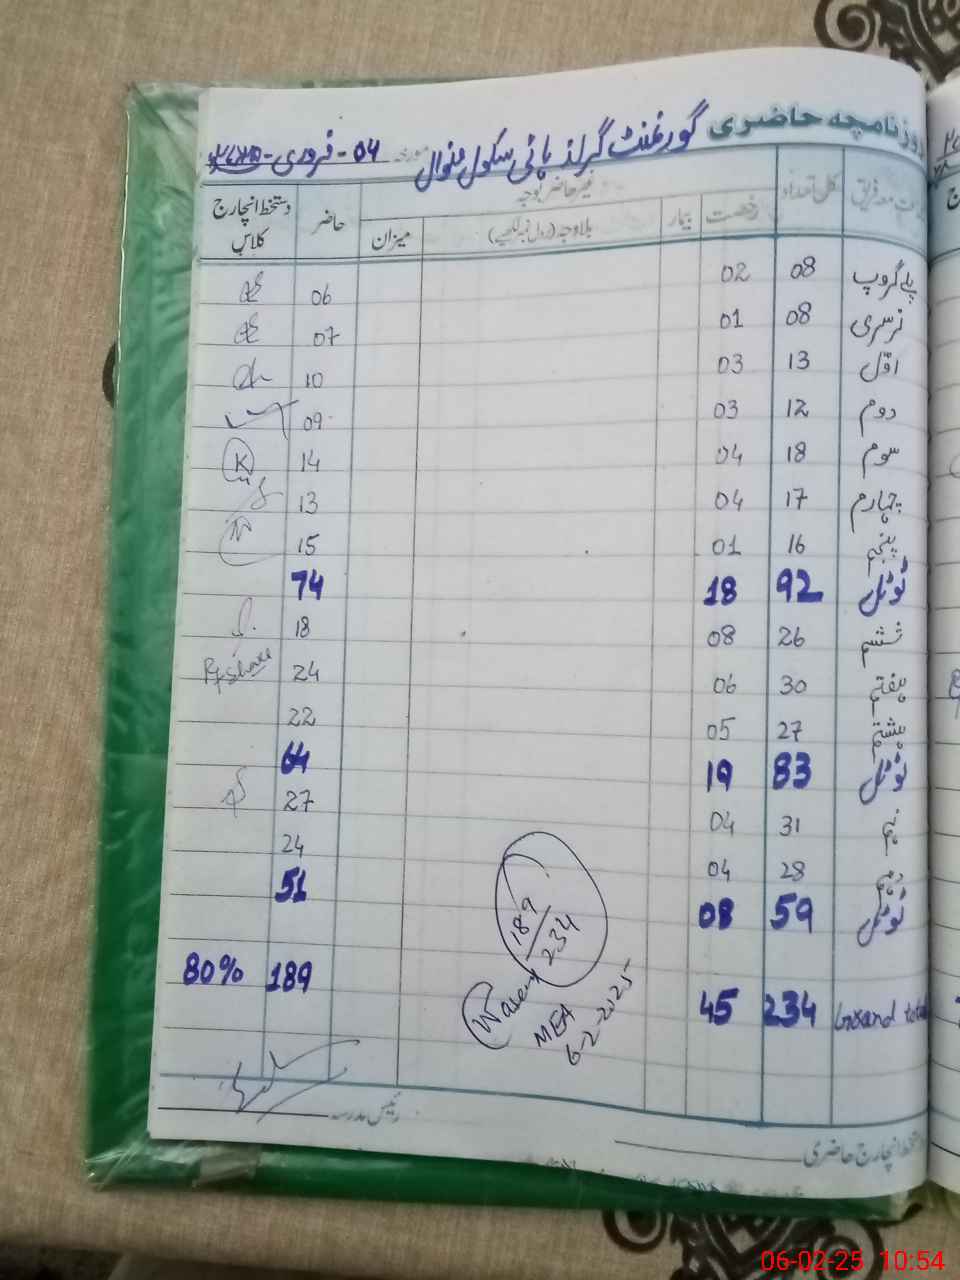 روزنامچہ حاضری گورنمنٹ گرلز ہائی سکول منوال مورخہ 04 - فروری -
کل تعداد غیر حاضر بوجہ حاضر دستخط انچارج کلاس
رخصت بیمار بلاوجہ میزان
پلے گروپ 08 02 06
نرسری 08 01 07
اوّل 13 03 10
دوم 12 03 09
سوم 18 04 14 K
چہارم 17 04 13
پنجم 16 01 15
ٹوٹل 92 18 74
ششم 26 08 18
ہفتم 30 06 24
ہشتم 27 05 22
ٹوٹل 83 19 64
نہم 31 04 27
دہم 28 04 24
ٹوٹل 59 08 51
Grand total 234 45 189 80%
189/234
MEA
6-2-2025
رئیس مدرسہ
دستخط انچارج حاضری
06-02-25 10:54